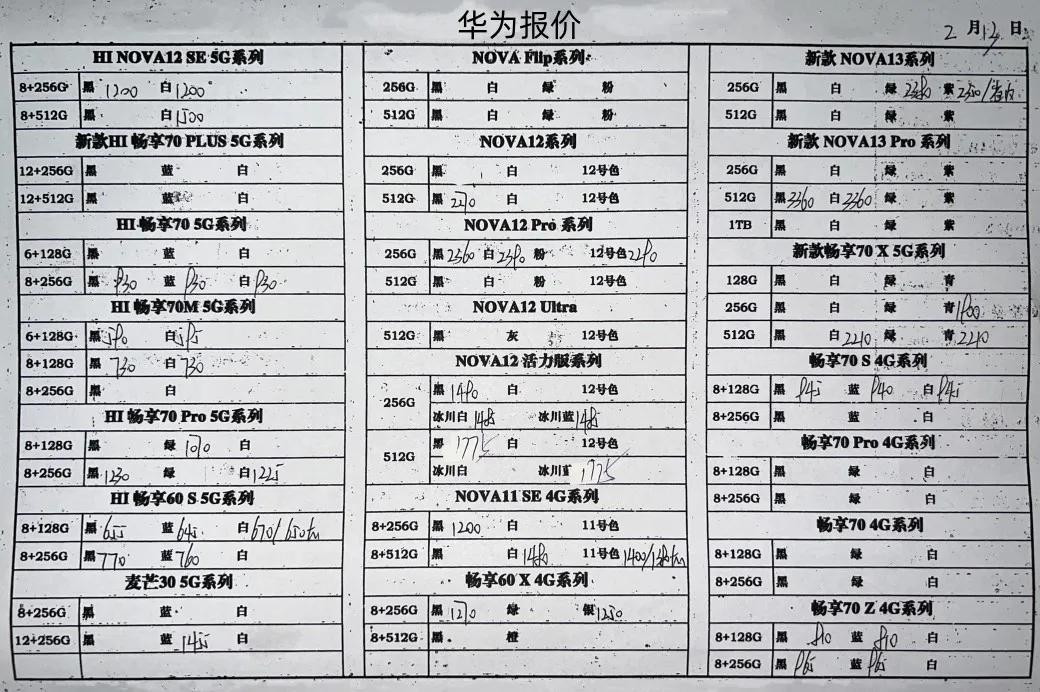 华为报价
2月12日
HI NOVA12 SE 5G系列
8+256G 黑 1200 白 1200
8+512G 黑 白 1500
新款HI 畅享70 PLUS 5G系列
12+256G 黑 蓝 白
12+512G 黑 蓝 白
HI 畅享70 5G系列
6+128G 黑 蓝 白
8+256G 黑 830 蓝 830 白 830
HI 畅享70M 5G系列
6+128G 黑 580 白 585
8+128G 黑 730 白 730
8+256G 黑 白
HI 畅享70 Pro 5G系列
8+128G 黑 绿 1070 白
8+256G 黑 1230 绿 白 1225
HI 畅享60 S 5G系列
8+128G 黑 655 蓝 645 白 670/650
8+256G 黑 770 蓝 760 白
麦芒30 5G系列
8+256G 黑 蓝 白
12+256G 黑 蓝 1455 白
NOVA Flip系列
256G 黑 白 绿 粉
512G 黑 白 绿 粉
NOVA12系列
256G 黑 白 12号色
512G 黑 2270 白 12号色
NOVA12 Pro 系列
256G 黑 2360 白 2380 粉 12号色 2280
512G 黑 白 粉 12号色
NOVA12 Ultra
512G 黑 灰 12号色
NOVA12 活力版系列
256G 黑 1480 白 12号色
冰川白 1485 冰川蓝 1485
512G 黑 1775 白 12号色
冰川白 冰川蓝 1775
NOVA11 SE 4G系列
8+256G 黑 1200 白 11号色
8+512G 黑 白 1480 11号色 1400/1380
畅享60 X 4G系列
8+256G 黑 1270 绿 银 1250
8+512G 黑 橙
新款 NOVA13系列
256G 黑 白 绿 2380 紫 2350/
512G 黑 白 绿 紫
新款 NOVA13 Pro 系列
256G 黑 白 绿 紫
512G 黑 3360 白 3360 绿 紫
1TB 黑 白 绿 紫
新款畅享70 X 5G系列
128G 黑 白 绿 青
256G 黑 白 绿 青 1800
512G 黑 白 2210 绿 青 2210
畅享70 S 4G系列
8+128G 黑 845 蓝 840 白 845
8+256G 黑 蓝 白
畅享70 Pro 4G系列
8+128G 黑 绿 白
8+256G 黑 绿 白
畅享70 4G系列
8+128G 黑 绿 白
8+256G 黑 绿 白
畅享70 Z 4G系列
8+128G 黑 810 蓝 810 白
8+256G 黑 865 蓝 865 白